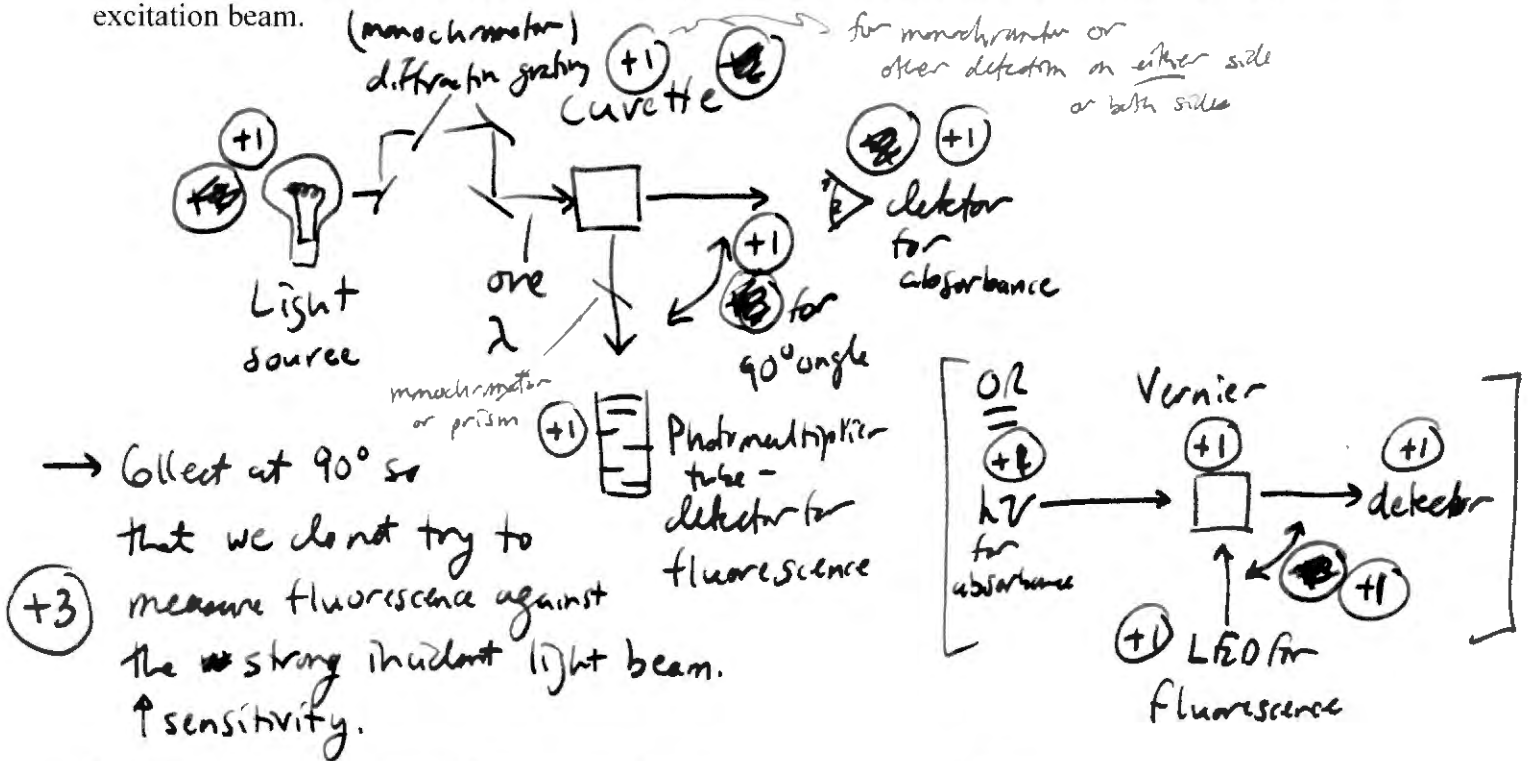 excitation beam.
(monochromator)
diffraction grating
+1
for monochromator or
other detection on either side
or both sides
Cuvette
+1
+1
Light
source
one
λ
detector
for
absorbance
+1
for
90° angle
monochromator
or prism
+1
Photomultiplier
tube -
detector for
fluorescence
→ Collect at 90° so
that we do not try to
+3
measure fluorescence against
the strong incident light beam.
↑ sensitivity.
OR
Vernier
+1
+1
+1
hν
for
absorbance
detector
+1
+1
LED for
fluorescence